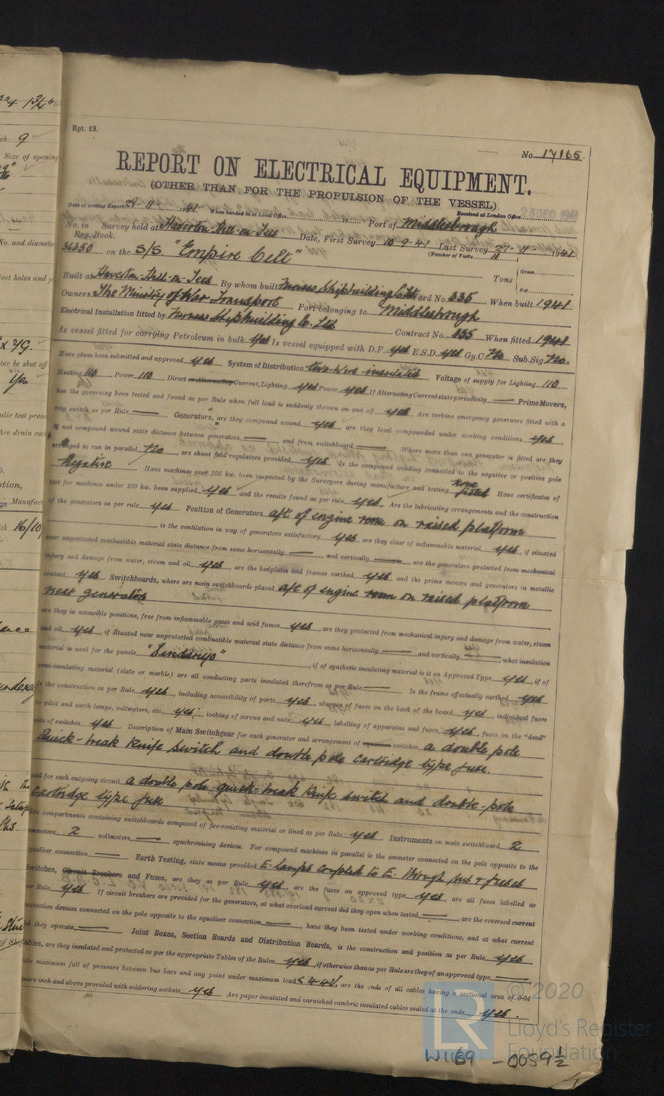 Rpt. 13.
No. 17165
REPORT ON ELECTRICAL EQUIPMENT.
(OTHER THAN FOR THE PROPULSION OF THE VESSEL)
Date of writing Report 28. 11. 1941 When handed in at Local Office Port of Middlesbrough Received at London Office
No. in Survey held at Haverton-Hill-on-Tees Date, First Survey 10-9-41 Last Survey 27-11-1941
Reg. Book. (Number of Visits
on the S/S "Empire Celt" Tons Gross Net
Built at Haverton-Hill-on-Tees By whom built Furness Shipbuilding Co Ltd Yard No. 335 When built 1941
Owners The Ministry of War Transport Port belonging to Middlesbrough
Electrical Installation fitted by Furness Shipbuilding Co. Ltd Contract No. 335 When fitted 1941
Is vessel fitted for carrying Petroleum in bulk yes Is vessel equipped with D.F. yes E.S.D. yes Gy.C. No Sub.Sig. No.
Have plans been submitted and approved yes System of Distribution two wire insulated Voltage of supply for Lighting 110
Heating 110 Power 110 Direct or Alternating Current, Lighting yes Power yes If Alternating Current state periodicity — Prime Movers,
has the governing been tested and found as per Rule when full load is suddenly thrown on and off yes Are turbine emergency governors fitted with a
trip switch as per Rule — Generators, are they compound wound yes, are they level compounded under working conditions yes,
if not compound wound state distance between generators — and from switchboard — Where more than one generator is fitted are they
arranged to run in parallel No, are shunt field regulators provided yes Is the compound winding connected to the negative or positive pole
Negative Have machines over 100 kw. been inspected by the Surveyors during manufacture and testing none fitted Have certificates of
test for machines under 100 kw. been supplied yes and the results found as per rule yes Are the lubricating arrangements and the construction
of the generators as per rule yes Position of Generators aft of engine room on raised platform
is the ventilation in way of generators satisfactory yes are they clear of inflammable material yes, if situated
near unprotected combustible material state distance from same horizontally — and vertically —, are the generators protected from mechanical
injury and damage from water, steam and oil yes, are the bedplates and frames earthed yes and the prime movers and generators in metallic
contact yes Switchboards, where are main switchboards placed aft of engine room on raised platform
near generators
are they in accessible positions, free from inflammable gases and acid fumes yes, are they protected from mechanical injury and damage from water, steam
and oil yes, if situated near unprotected combustible material state distance from same horizontally — and vertically —, what insulation
material is used for the panels "Sindanyo", if of synthetic insulating material is it an Approved Type yes, if of
semi-insulating material (slate or marble) are all conducting parts insulated therefrom as per Rule — Is the frame effectually earthed yes
Is the construction as per Rule yes, including accessibility of parts yes, absence of fuses on the back of the board yes, individual fuses
to pilot and earth lamps, voltmeters, etc. yes locking of screws and nuts yes, labelling of apparatus and fuses yes, fuses on the "dead"
side of switches yes Description of Main Switchgear for each generator and arrangement of equaliser switches, a double pole
Quick-break knife switch and double pole cartridge type fuse.
and for each outgoing circuit a double pole quick-break knife switch and double-pole
cartridge type fuse
Are compartments containing switchboards composed of fire-resisting material or lined as per Rule yes Instruments on main switchboard 2
ammeters 2 voltmeters — synchronising devices. For compound machines in parallel is the ammeter connected on the pole opposite to the
equaliser connection — Earth Testing, state means provided E-lamps coupled to E. through sws & fuses
Switches, Circuit Breakers and Fuses, are they as per Rule yes are the fuses an approved type yes are all fuses labelled as
per Rule yes If circuit breakers are provided for the generators, at what overload current did they open when tested —, are the reversed current
protection devices connected on the pole opposite to the equaliser connection —, have they been tested under working conditions, and at what current
did they operate — Joint Boxes, Section Boards and Distribution Boards, is the construction and position as per Rule yes
Cables, are they insulated and protected as per the appropriate Tables of the Rules yes, if otherwise than as per Rule are they of an approved type —
state maximum fall of pressure between bus bars and any point under maximum load < 4.4V, are the ends of all cables having a sectional area of 0.04
square inch and above provided with soldering sockets yes Are paper insulated and varnished cambric insulated cables sealed at the ends yes.
© 2020
Lloyd's Register
Foundation
W1169 - 0059½